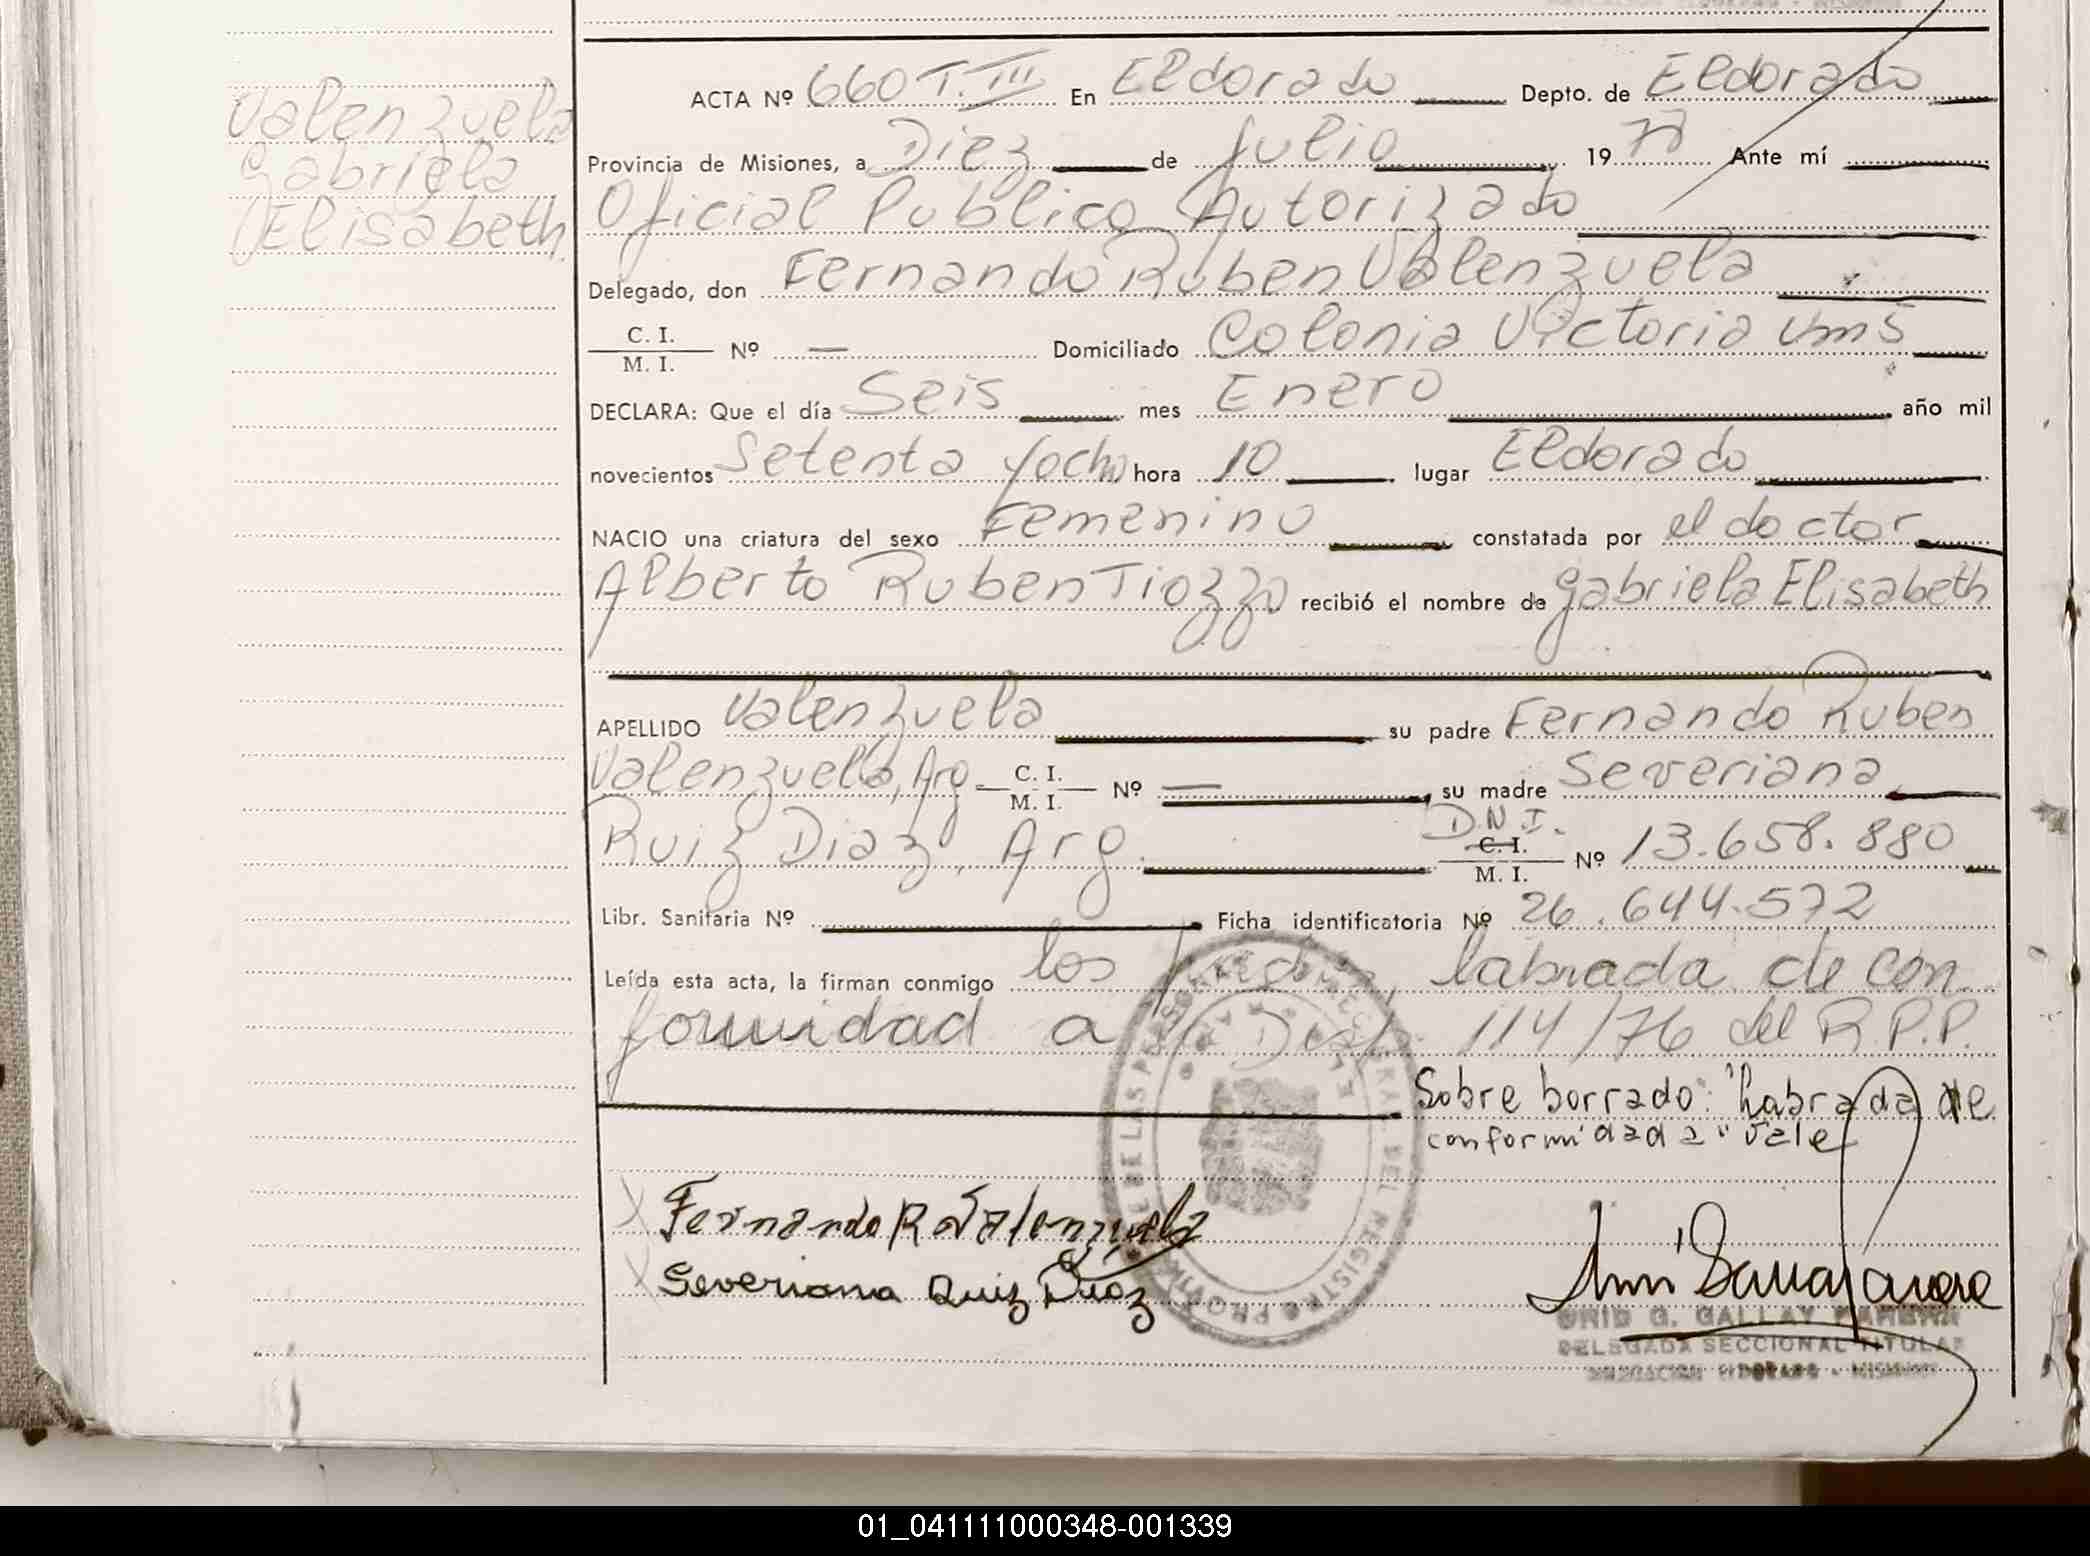 Valenzuela
Gabriela
Elisabeth
ACTA Nº 660 T.III En Eldorado Depto. de Eldorado
Provincia de Misiones, a Diez de Julio 1978 Ante mí
Oficial Publico Autorizado
Delegado, don Fernando Ruben Valenzuela
C. I.
M. I. Nº — Domiciliado Colonia Victoria
DECLARA: Que el día Seis mes Enero año mil
novecientos Setenta y ocho hora 10 lugar Eldorado
NACIO una criatura del sexo Femenino constatada por el doctor
Alberto Ruben Tiozzo recibió el nombre de Gabriela Elisabeth
APELLIDO Valenzuela su padre Fernando Ruben
Valenzuela, Arg C. I. M. I. Nº — su madre Severiana
Ruiz Diaz, Arg. D.N.I. C. I. M. I. Nº 13.658.880
Libr. Sanitaria Nº Ficha identificatoria Nº 26.644.572
Leída esta acta, la firman conmigo los labrada de con
formidad a Disp. 114/76 del R.P.P.
Sobre borrado: "labrada de
conformidad a" Vale
Fernando R Valenzuela
Severiana Ruiz Diaz
G. GALLAY
DELEGADA SECCIONAL TITULAR
DELEGACION ELDORADO - MISIONES
01_041111000348-001339